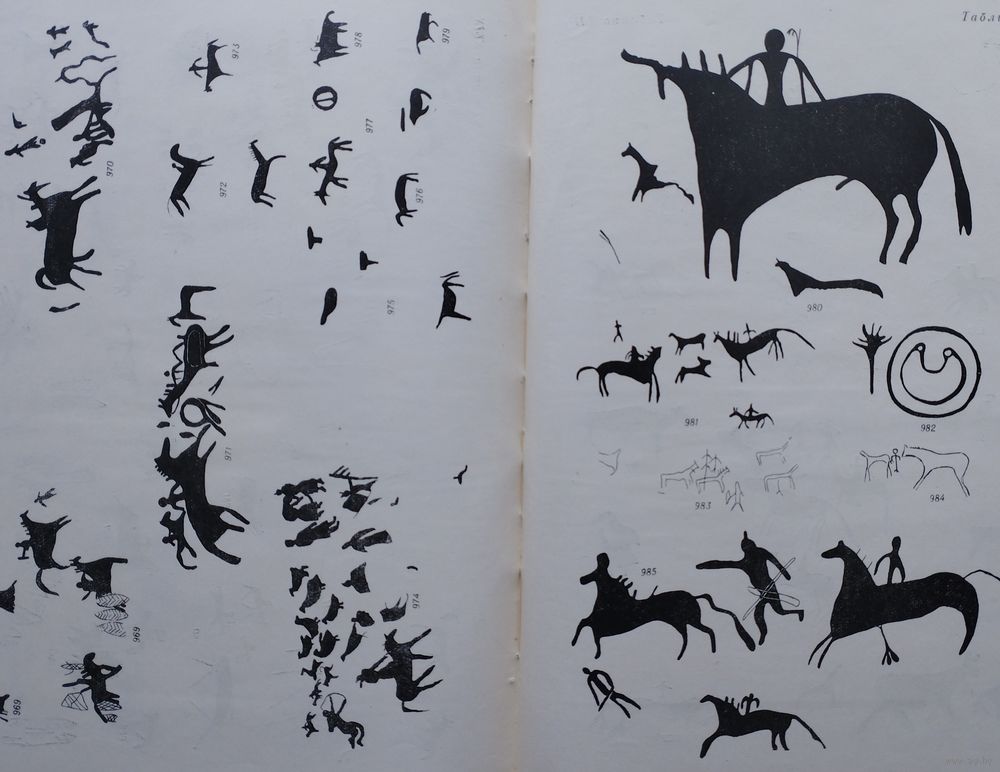 Табли
979
978
973
977
970
972
976
975
971
974
969
969
980
981
982
983
984
985